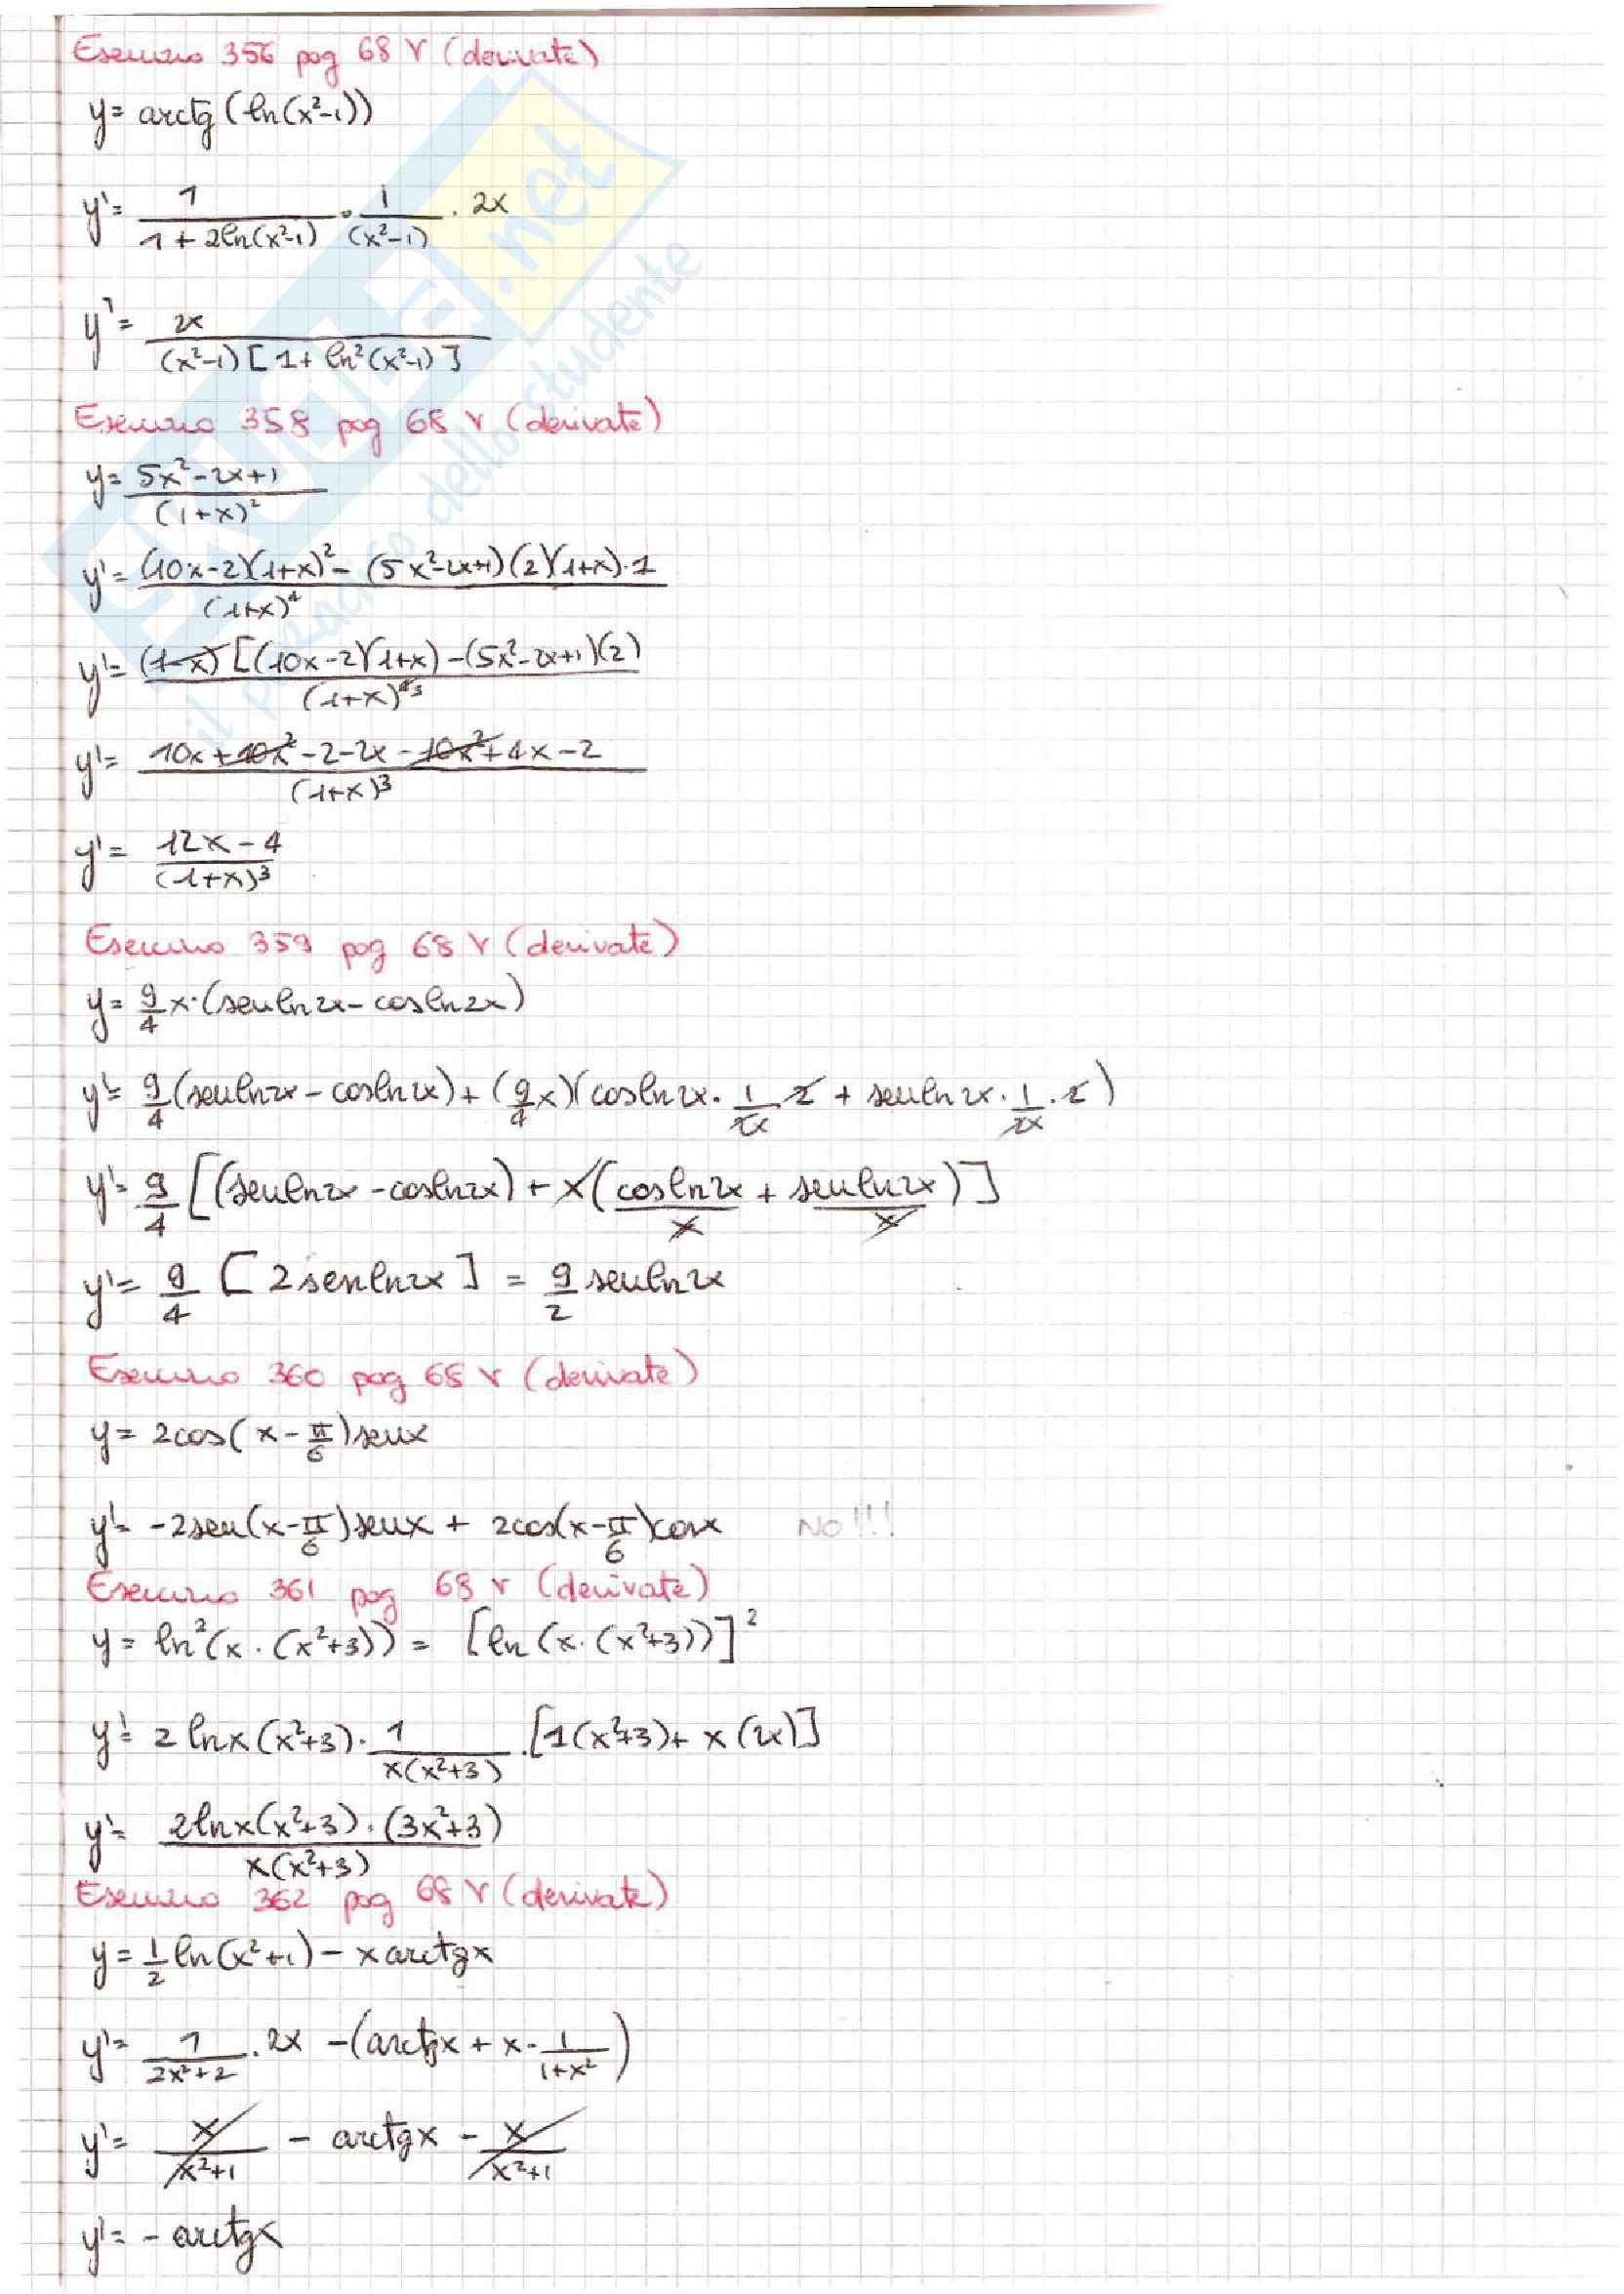 Esercizio 356 pag 68 V (derivate)
y= arctg (ln(x²-1))
y'= 1/(1+2ln(x²-1)) · 1/(x²-1) · 2x
y'= 2x/((x²-1)[1+ln²(x²-1)])
Esercizio 358 pag 68 V (derivate)
y= (5x²-2x+1)/(1+x)²
y'= ((10x-2)(1+x)² - (5x²-2x+1)(2)(1+x)·1)/(1+x)⁴
y'= (1-x)[(10x-2)(1+x)-(5x²-2x+1)(2)/(1+x)⁴³
y'= (10x+10x²-2-2x-10x²+4x-2)/(1+x)³
y'= (12x-4)/(1+x)³
Esercizio 359 pag 68 V (derivate)
y= 9/4 x·(senln2x-cosln2x)
y'= 9/4 (senln2x-cosln2x)+(9/4 x)(cosln2x· 1/2x ·2 + senln2x· 1/2x ·2)
y'= 9/4 [(senln2x-cosln2x)+x(cosln2x/x + senln2x/x)]
y'= 9/4 [2senln2x] = 9/2 senln2x
Esercizio 360 pag 68 V (derivate)
y= 2cos(x-π/6)senx
y'= -2sen(x-π/6)senx + 2cos(x-π/6)cosx NO!!!
Esercizio 361 pag 68 V (derivate)
y= ln²(x·(x²+3)) = [ln(x·(x²+3))]²
y'= 2lnx(x²+3)· 1/(x(x²+3)) ·[1(x²+3)+x(2x)]
y'= (2lnx(x²+3)·(3x²+3))/(x(x²+3))
Esercizio 362 pag 68 V (derivate)
y= 1/2 ln(x²+1)-xarctgx
y'= 1/(2x²+2) ·2x -(arctgx+x· 1/(1+x²))
y'= x/(x²+1) - arctgx - x/(x²+1)
y'= -arctgx
SKUOLA.net
il paradiso dello studente